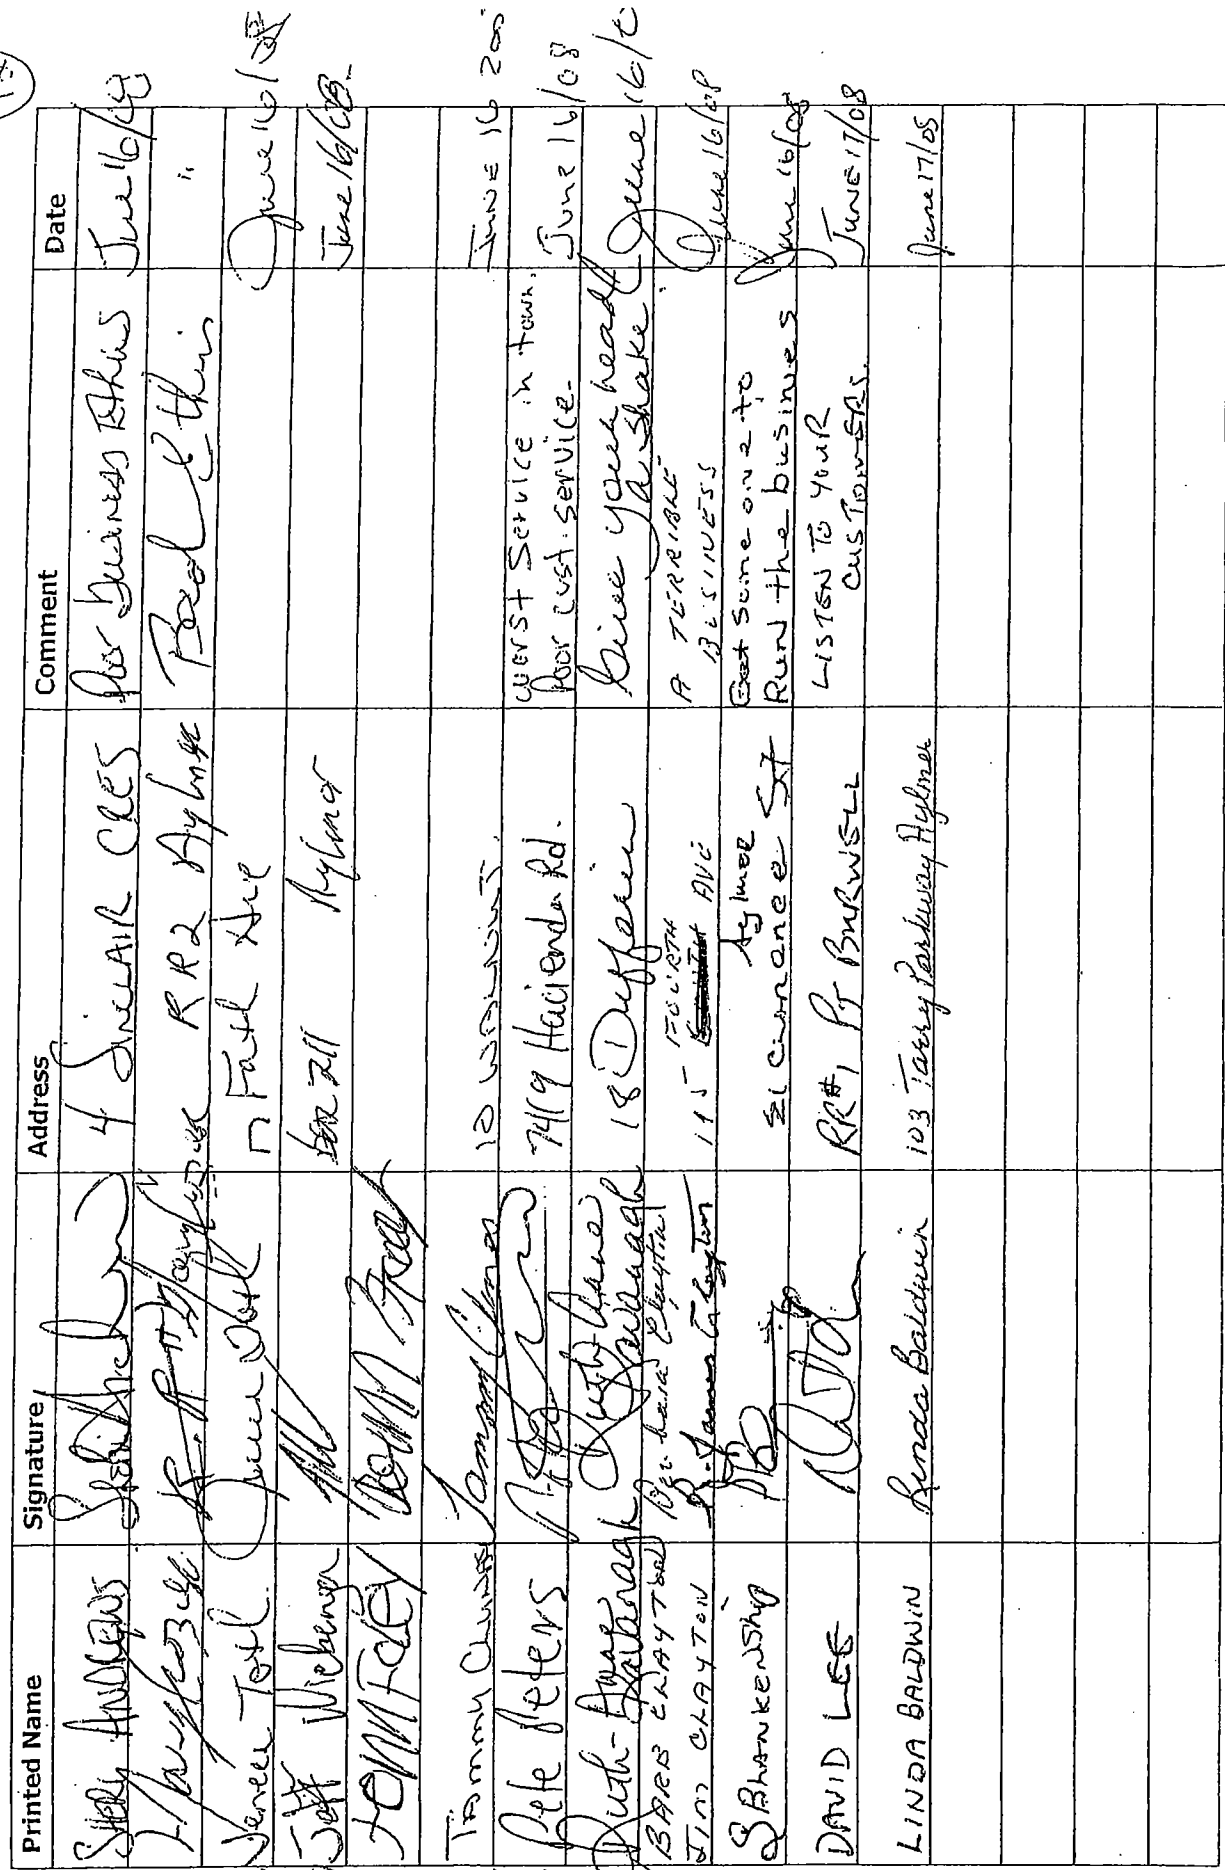 Printed Name Signature Address Comment Date
Sheri Andrews 4 SINCLAIR CRES Poor Business Ethics June 16/08
RR2 Aylmer Bad Ethics "
Fath Ave June 16/08
Jeff Wiebenga box 211 Aylmer June 16/08
TOM FOLEY
Tammy Tammy 10 WALNUT JUNE 16 200
Pete Peters 7419 Hacienda Rd. worst service in town.
Poor cust. service. June 16/08
Ruth-Anne Cavanagh Ruth Anne Cavanagh 18 Dufferin Give your head
a shake June 16/0
BARB CLAYTON Barbara Clayton 115 FOURTH AVE A TERRIBLE
JIM CLAYTON James Clayton BUSINESS June 16/08
S BLANKENSHIP Aylmer
St Get someone to
Run the business June 16/08
DAVID LEE RR#1 PT BURWELL LISTEN TO YOUR
CUSTOMERS. JUNE 17/08
LINDA BALDWIN Linda Baldwin 103 Tarry Parkway Aylmer June 17/08